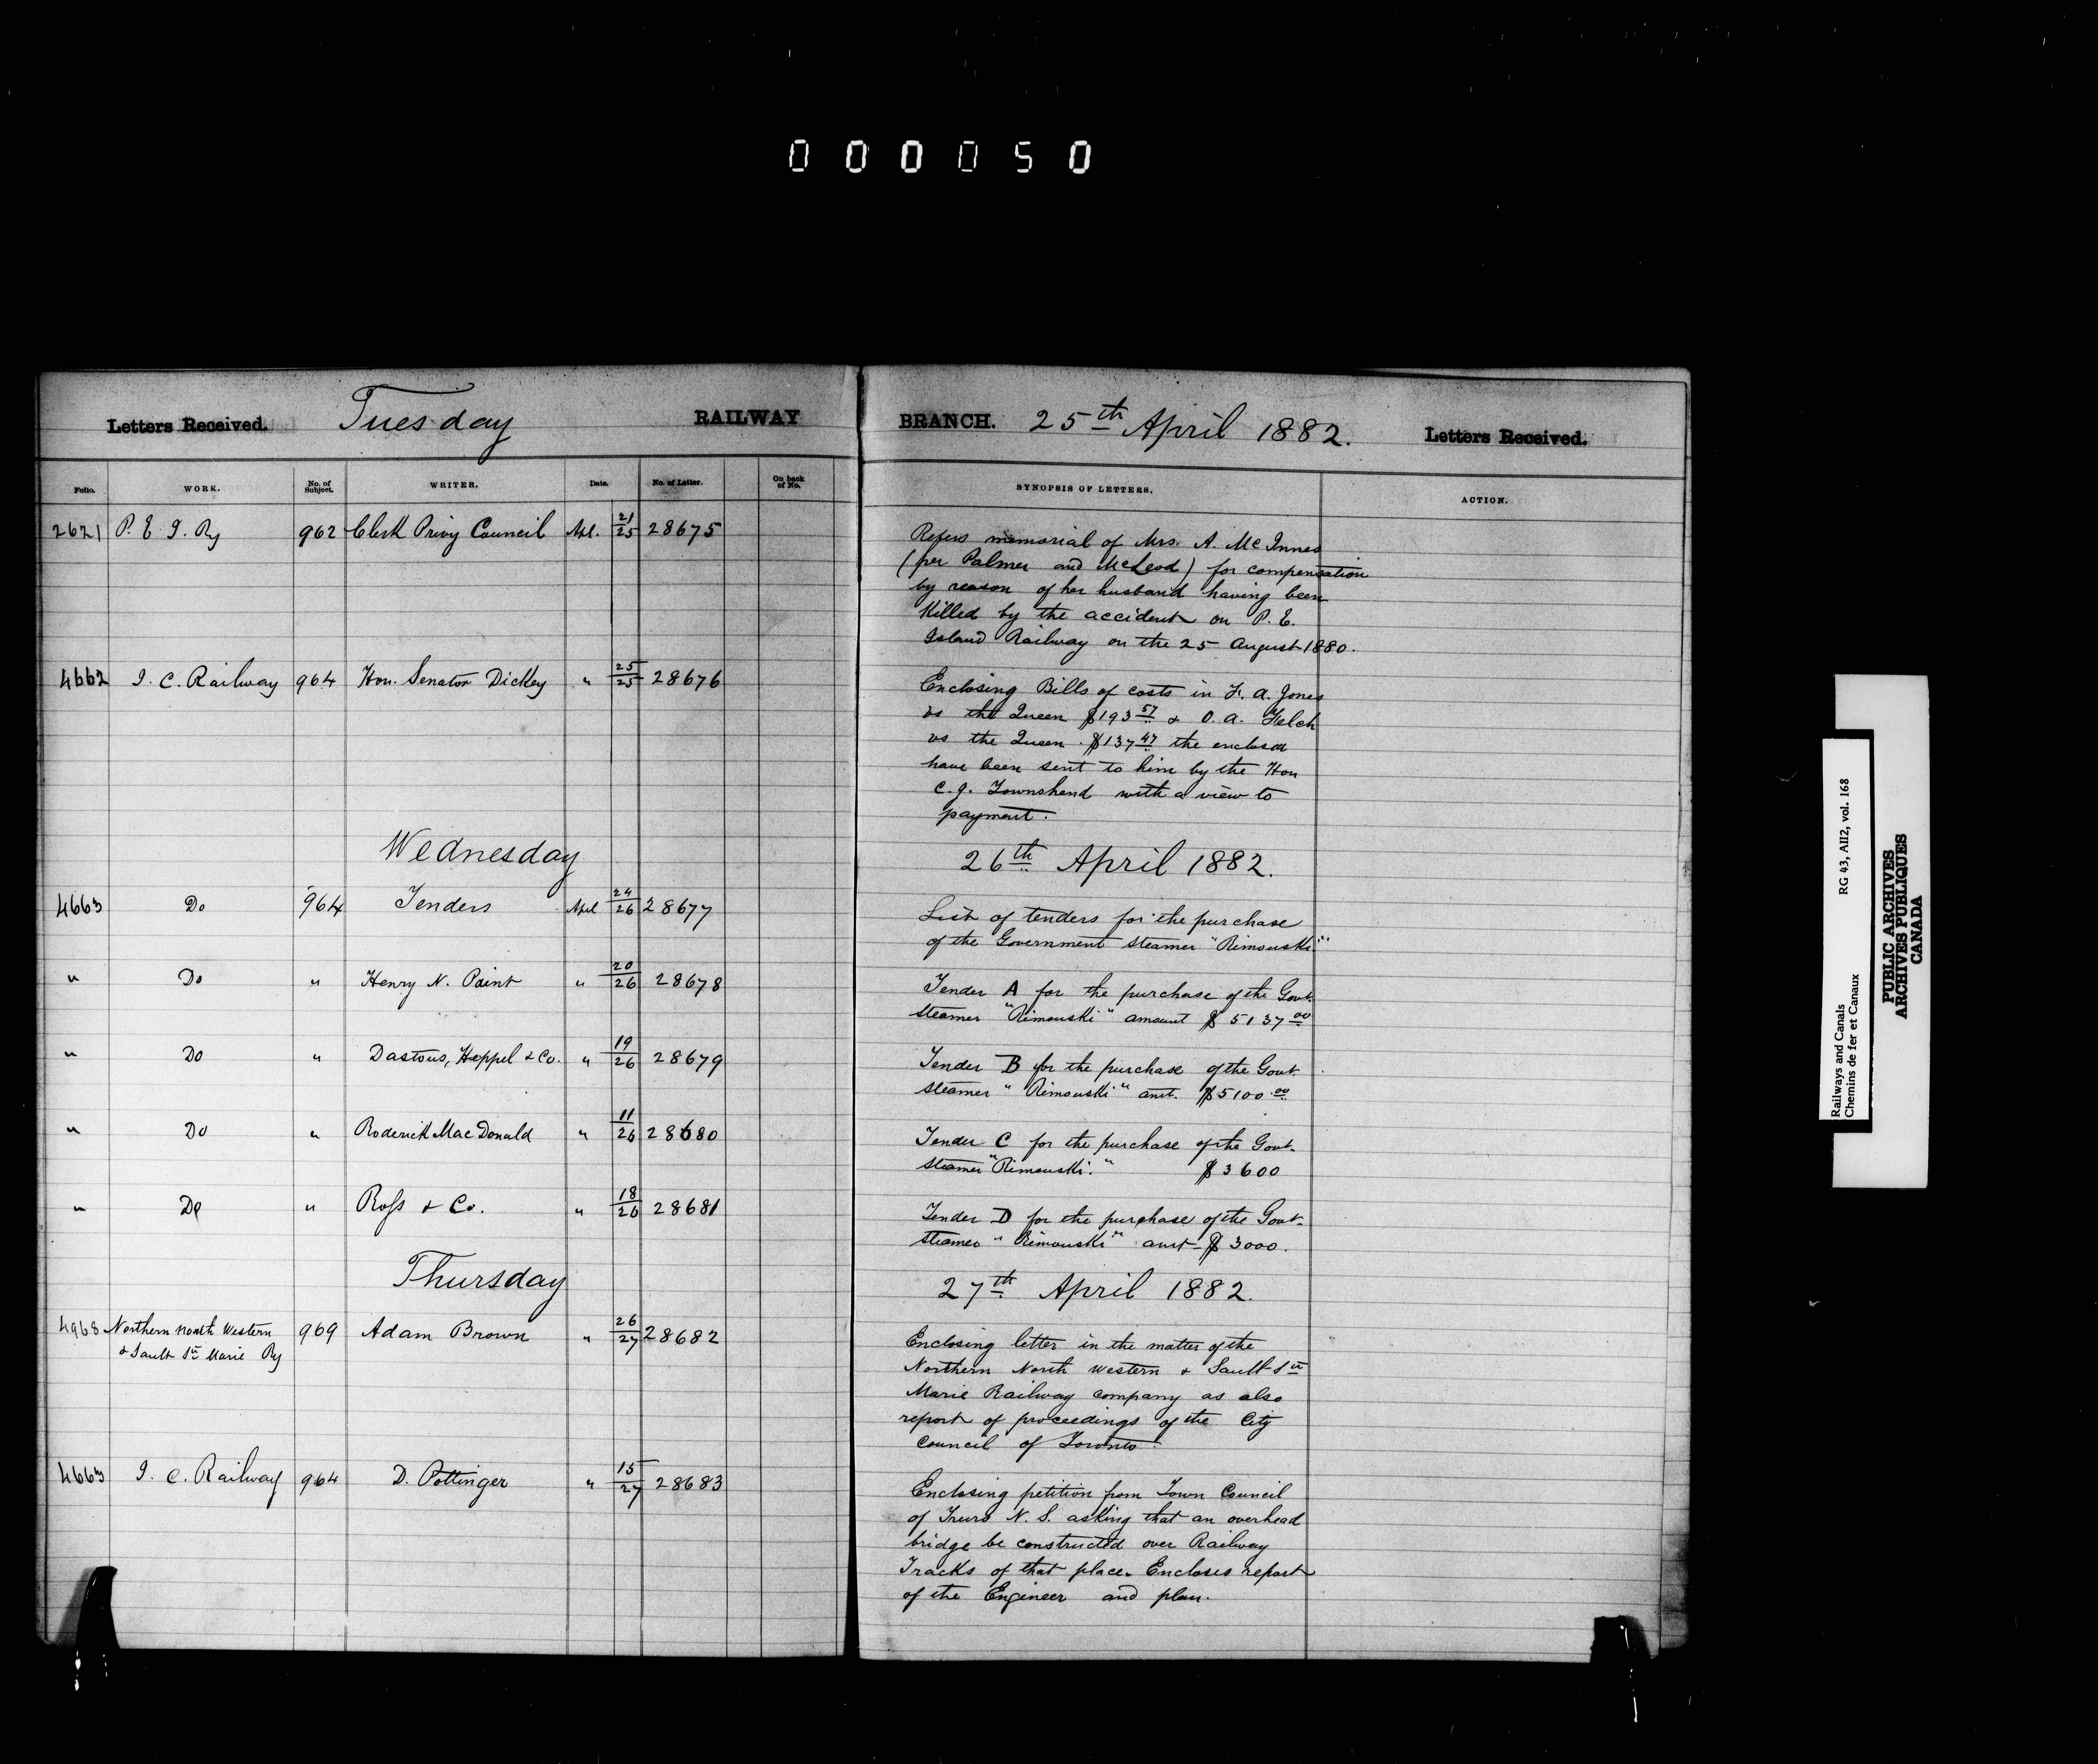 000050
Letters Received. Tuesday RAILWAY BRANCH. 25th April 1882. Letters Received.
Folio. WORK. No. of Subject. WRITER. Date. No. of Letter. On back of No. SYNOPSIS OF LETTERS. ACTION.
2621 P. E. I. Ry 962 Clerk Privy Council Apl. 21/25 28675
Refers memorial of Mrs. A. McInnes
(per Palmer and McLeod) for compensation
by reason of her husband having been
killed by the accident on P. E.
Island Railway on the 25 August 1880.
4662 I. C. Railway 964 Hon. Senator Dickey " 25/25 28676
Enclosing Bills of costs in F. A. Jones
vs the Queen $193 57 & O. A. Felch
vs the Queen. $137 47 the enclosed
have been sent to him by the Hon
C. J. Townshend with a view to
payment.
Wednesday 26th April 1882.
4663 Do 964 Tenders Apl 24/26 28677
List of tenders for the purchase
of the Government steamer "Rimouski."
" Do " Henry N. Paint " 20/26 28678
Tender A for the purchase of the Govt.
steamer "Rimouski" amount $5137 00
" Do " Dastous, Heppel & Co. " 19/26 28679
Tender B for the purchase of the Govt.
steamer "Rimouski" amt. $5100.00
" Do " Roderick MacDonald " 11/26 28680
Tender C for the purchase of the Govt.
steamer "Rimouski." $3600
" Do " Ross & Co. " 18/26 28681
Tender D for the purchase of the Govt.
steamer "Rimouski" amt $3000.
Thursday 27th April 1882.
4968 Northern North Western
& Sault Ste Marie Ry 969 Adam Brown " 26/27 28682
Enclosing letter in the matter of the
Northern North Western & Sault Ste
Marie Railway Company as also
report of proceedings of the City
Council of Toronto.
4663 I. C. Railway 964 D. Pottinger " 15/27 28683
Enclosing petition from Town Council
of Truro N. S. asking that an overhead
bridge be constructed over Railway
Tracks of that place. Encloses report
of the Engineer and plan.
Railways and Canals
Chemins de fer et Canaux
RG 43, AII2, vol. 168
PUBLIC ARCHIVES
ARCHIVES PUBLIQUES
CANADA